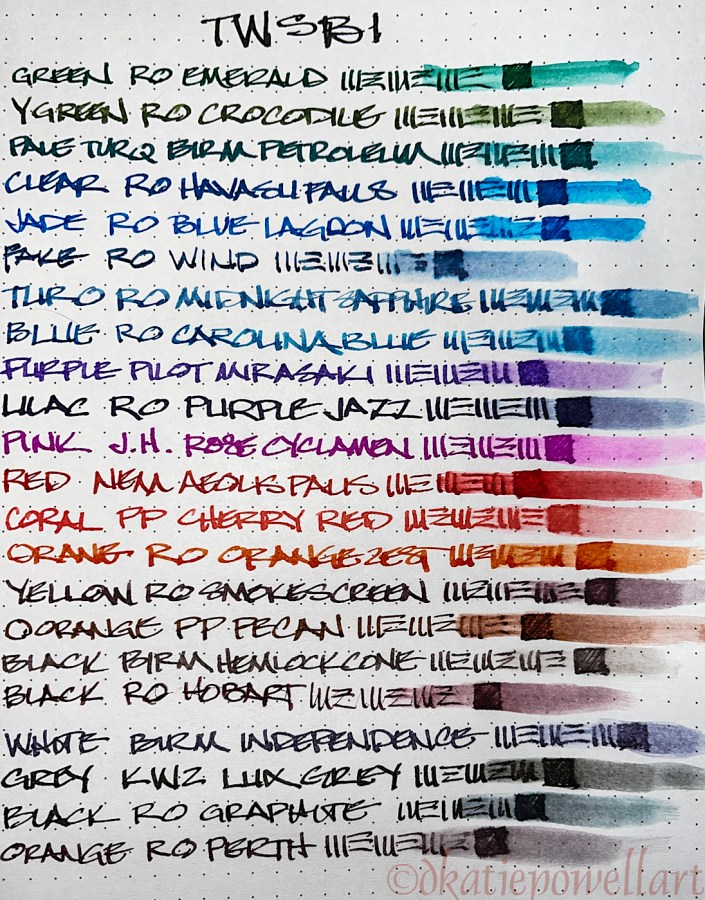 TWSBI
GREEN RO EMERALD
YGREEN RO CROCODILE
PALE TURQ BIRM PETROLEUM
CLEAR RO HAVASU FALLS
JADE RO BLUE LAGOON
FAKE RO WIND
TURQ RO MIDNIGHT SAPPHIRE
BLUE RO CAROLINA BLUE
PURPLE PILOT MIRASAKI
LILAC RO PURPLE JAZZ
PINK J.H. ROSE CYCLAMEN
RED NEM AEOLIS PALIS
CORAL PP CHERRY RED
ORANG RO ORANGE ZEST
YELLOW RO SMOKESCREEN
OORANGE PP PECAN
BLACK BIRM HEMLOCK CONE
BLACK RO HOBART
WHITE BIRM INDEPENDENCE
GREY KWZ LUX GREY
BLACK RO GRAPHITE
ORANGE RO PERTH
©dkatiepowellart